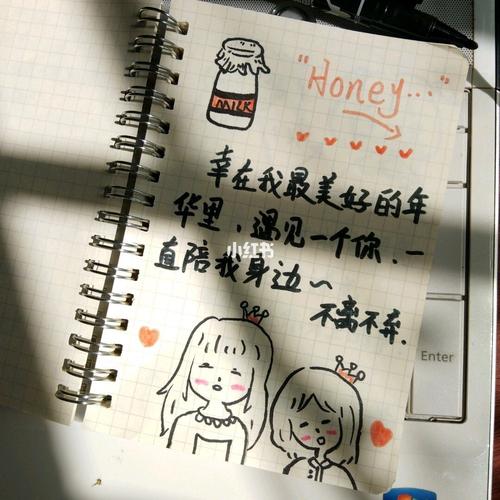 MILK
"Honey..."
幸在我最美好的年
华里，遇见一个你，一
直陪我身边~
不离不弃.
小红书
Enter